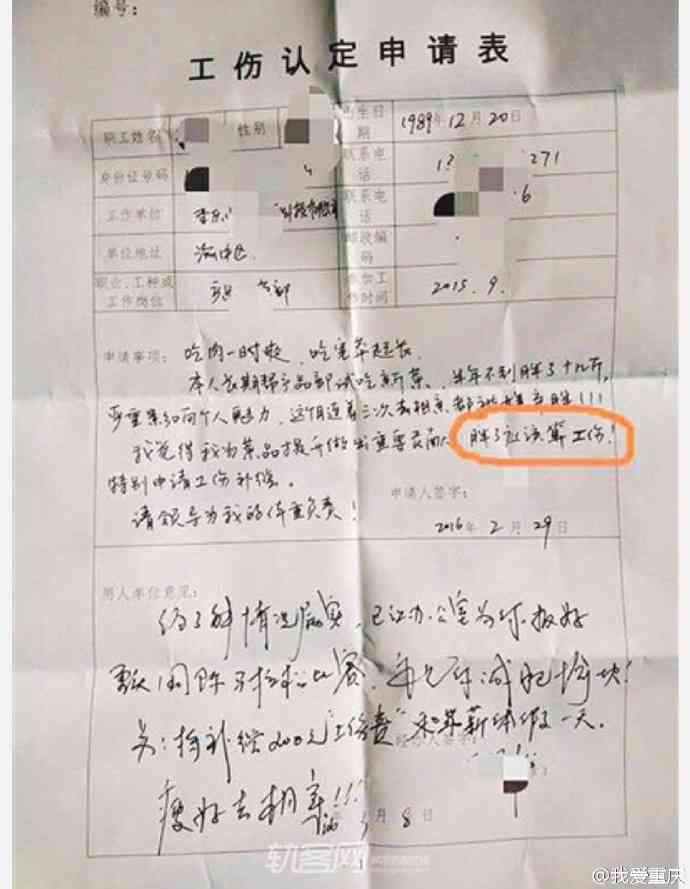 编号:
工伤认定申请表
职工姓名 性别 出生日期 1989年12月20日
身份证号码 联系电话 271
工作单位 联系电话 6
单位地址 渝中区 邮政编码
职业、工种或工作岗位 参加工作时间 2015.9.
申请事项: 吃肉一时爽,吃完葬起长
本人长期帮产品部试吃新菜,半年不到胖了十几斤,
严重影响个人魅力,这个月连着三次去相亲都说胖!!!
我觉得我为菜品提升做出重要贡献,胖了应该算工伤!
特别申请工伤补偿。
请领导为我的体重负责!
申请人签字:
2016年2月29日
用人单位意见:
经了解情况属实,已让办公室为你报好
重庆国际马拉松比赛,
另:将补偿200元"工伤费"和带薪休假一天。
经办人签字:
瘦好去相亲!!!
月8日
轨客网
@我爱重庆